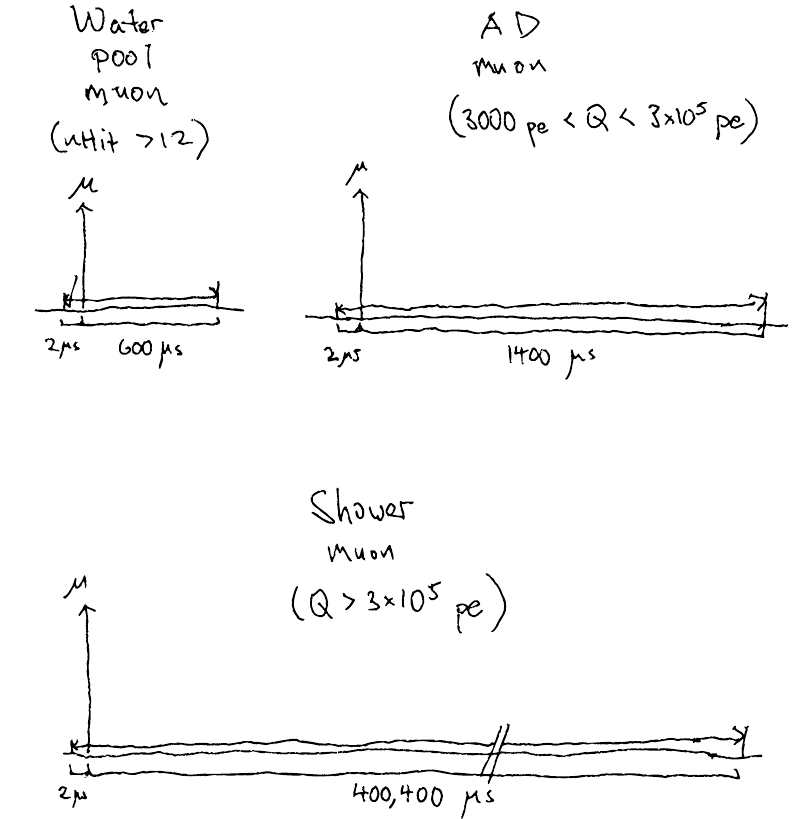 Water
pool
muon
(nHit >12)
μ
2μs 600 μs
AD
muon
(3000 pe < Q < 3×10⁵ pe)
μ
2μs 1400 μs
Shower
muon
(Q > 3×10⁵ pe)
μ
2μs 400,400 μs